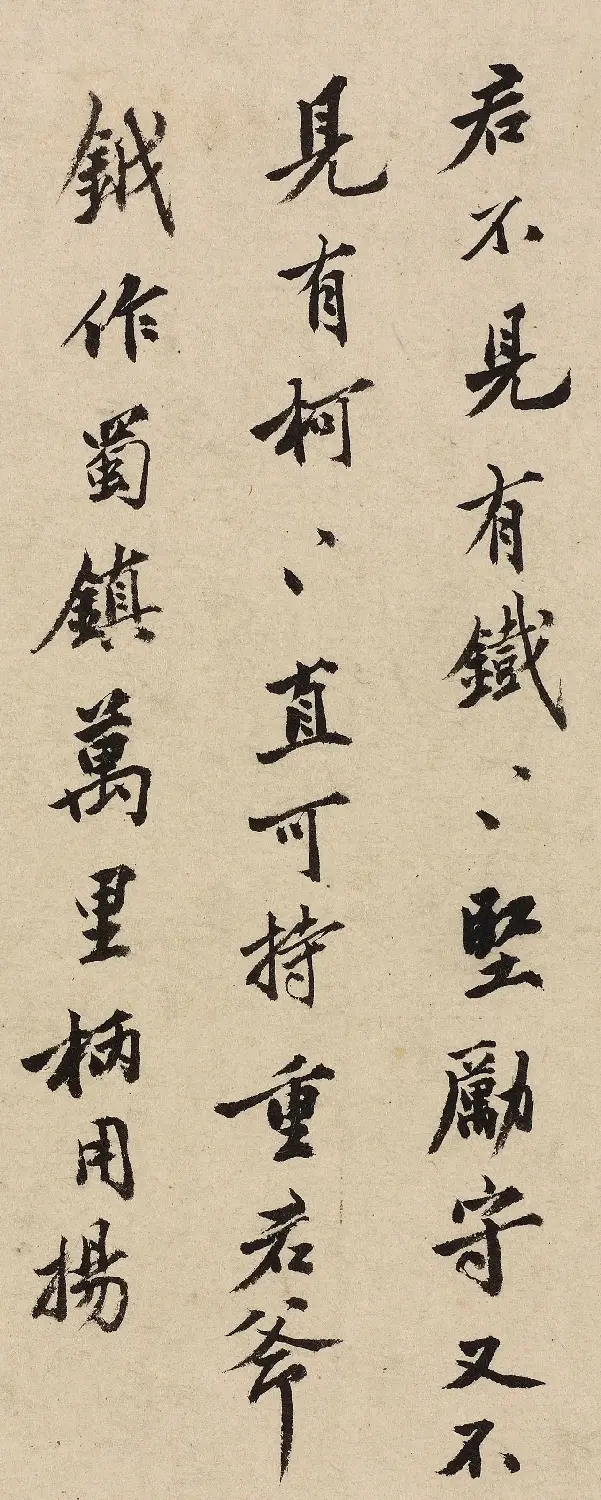 君不見有鐵〻堅勵守又不
見有柯〻直可持重若斧
鉞作蜀鎮萬里柄用揚